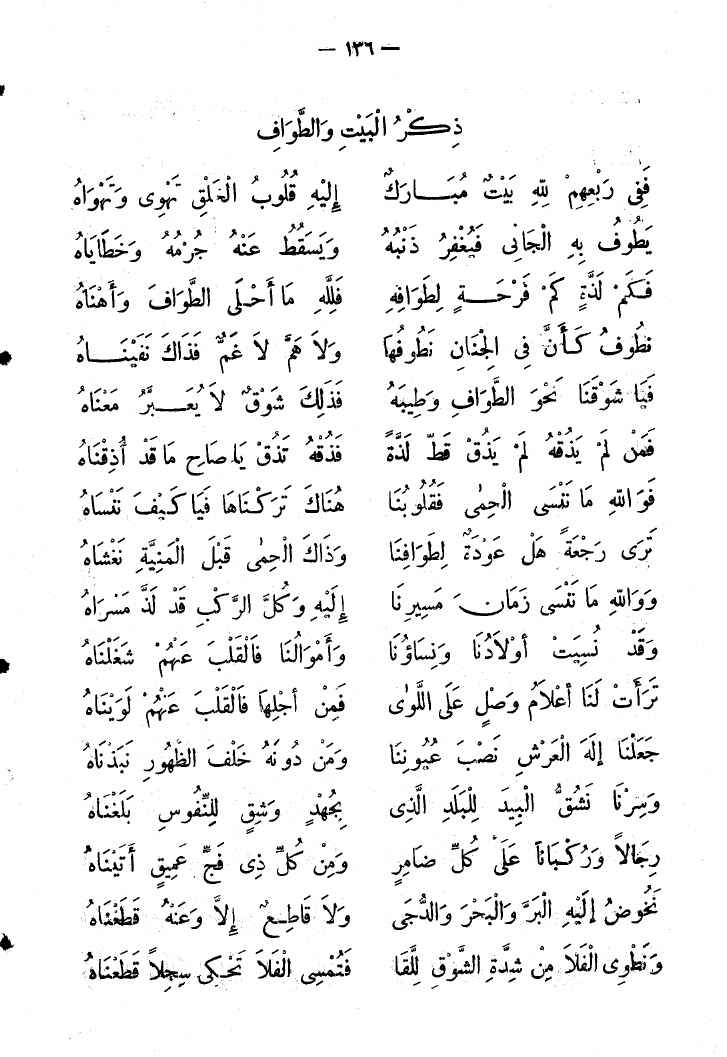 — ١٣٦ —
ذِكْرُ الْبَيْتِ وَالطَّوَافِ
فَفِي رَبْعِهِمْ لِلهِ بَيْتٌ مُبَارَكٌ إِلَيْهِ قُلُوبُ الْخَلْقِ تَهْوِى وَتَهْوَاهُ
يَطُوفُ بِهِ الْجَانِى فَيُغْفَرُ ذَنْبُهُ وَيَسْقُطُ عَنْهُ جُرْمُهُ وَخَطَايَاهُ
فَكَمْ لَذَّةٍ كَمْ فَرْحَةٍ لِطَوَافِهِ فَلِلَّهِ مَا أَحْلَى الطَّوَافَ وَأَهْنَاهُ
نَطُوفُ كَأَنَّ فِى الْجِنَانِ نَطُوفُهَا وَلاَ هَمَّ لاَ غَمٌّ فَذَاكَ نَفَيْنَاهُ
فَيَا شَوْقَنَا نَحْوَ الطَّوَافِ وَطِيبَهُ فَذَلِكَ شَوْقٌ لاَ يُعَبَّرُ مَعْنَاهُ
فَمَنْ لَمْ يَذُقْهُ لَمْ يَذُقْ قَطُّ لَذَّةً فَذُقْهُ تَذُقْ يَا صَاحِ مَا قَدْ أُذِقْنَاهُ
فَوَاللهِ مَا نَنْسَى الْحِمٰى فَقُلُوبُنَا هُنَاكَ تَرَكْنَاهَا فَيَا كَيْفَ نَنْسَاهُ
تَرَى رَجْعَةً هَلْ عَوْدَةٌ لِطَوَافِنَا وَذَاكَ الْحِمٰى قَبْلَ الْمَنِيَّةِ نَغْشَاهُ
وَوَاللهِ مَا نَنْسَى زَمَانَ مَسِيرِنَا إِلَيْهِ وَكُلُّ الرَّكْبِ قَدْ لَذَّ مَسْرَاهُ
وَقَدْ نُسِيَتْ أَوْلاَدُنَا وَنِسَاؤُنَا وَأَمْوَالُنَا فَالْقَلْبَ عَنْهُمْ شَغَلْنَاهُ
تَرَأَتْ لَنَا أَعْلاَمُ وَصْلٍ عَلَى اللَّوٰى فَمِنْ أَجْلِهَا فَالْقَلْبَ عَنْهُمْ لَوَيْنَاهُ
جَعَلْنَا إِلَهَ الْعَرْشِ نَصْبَ عُيُونِنَا وَمَنْ دُونَهُ خَلْفَ الظُّهُورِ نَبَذْنَاهُ
وَسِرْنَا نَشُقُّ الْبِيدَ لِلْبَلَدِ الَّذِى بِجُهْدٍ وَشِقٍّ لِلنُّفُوسِ بَلَغْنَاهُ
رِجَالاً وَرُكْبَانًا عَلَى كُلِّ ضَامِرٍ وَمِنْ كُلِّ ذِى فَجٍّ عَمِيقٍ أَتَيْنَاهُ
نَخُوضُ إِلَيْهِ الْبَرَّ وَالْبَحْرَ وَالدُّجَى وَلاَ قَاطِعٌ إِلاَّ وَعَنْهُ قَطَعْنَاهُ
وَنَطْوِى الْفَلاَ مِنْ شِدَّةِ الشَّوْقِ لِلَّقَا فَتُمْسِى الْفَلاَ تَحْكِى سِجِلاًّ قَطَعْنَاهُ